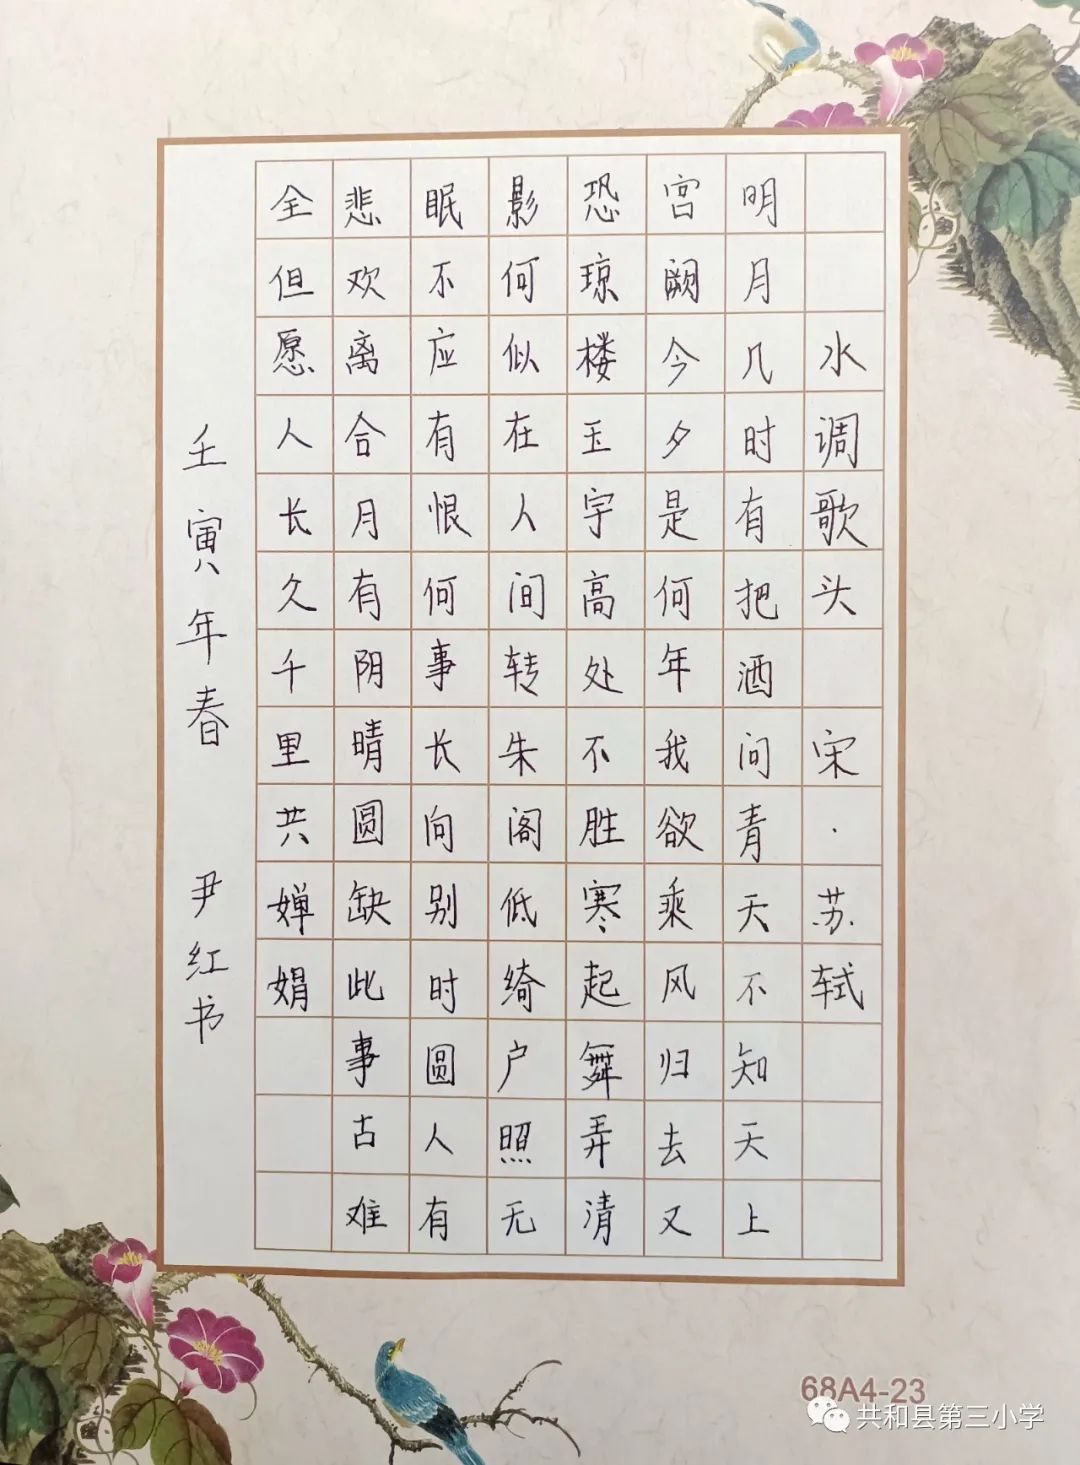 水调歌头 宋·苏轼
明月几时有把酒问青天不知天上
宫阙今夕是何年我欲乘风归去又
恐琼楼玉宇高处不胜寒起舞弄清
影何似在人间转朱阁低绮户照无
眠不应有恨何事长向别时圆人有
悲欢离合月有阴晴圆缺此事古难
全但愿人长久千里共婵娟
壬寅年春 尹红书
68A4-23
共和县第三小学